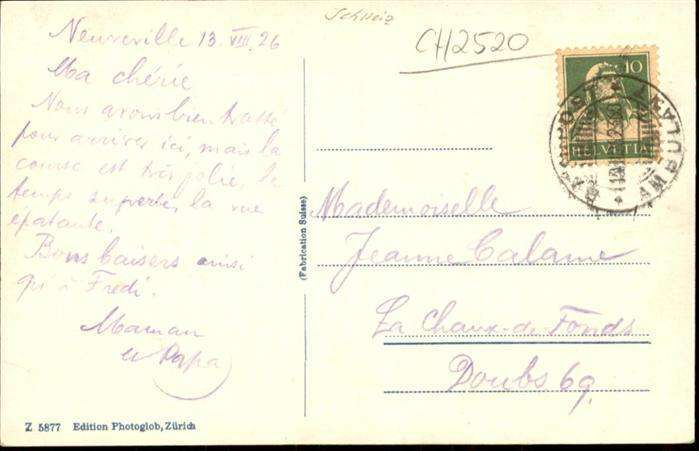 Schweiz
CH2520
Neuveville 13. VIII. 26
Ma chérie
Nous avons bien trotté
pour arriver ici, mais la
course est très jolie, le
temps superbe, la vue
épatante.
Bons baisers ainsi
qu'à Fredi.
Maman
et Papa
Z 5877 Edition Photoglob, Zürich
(Fabrication Suisse)
10
HELVETIA
AMBULANT
Mademoiselle
Jeanne Calame
La Chaux-de-Fonds
Doubs 69.